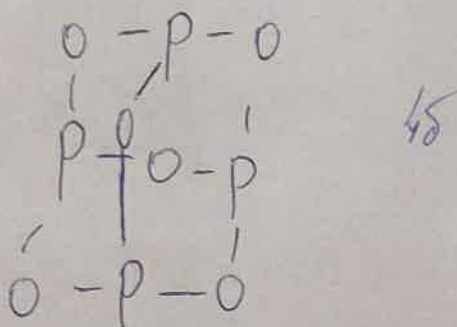 O - P - O
O
P - O - P
O - P - O
4б